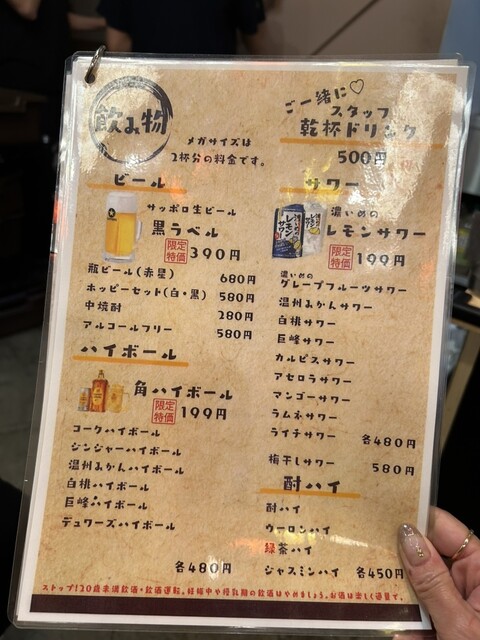 飲み物
メガサイズは
2杯分の料金です。
ビール
サッポロ生ビール
黒ラベル
限定特価 390円
瓶ビール(赤星) 680円
ホッピーセット(白・黒) 580円
中焼酎 280円
アルコールフリー 580円
ハイボール
角ハイボール
限定特価 199円
コークハイボール
ジンジャーハイボール
温州みかんハイボール
白桃ハイボール
巨峰ハイボール
デュワーズハイボール
各480円
ご一緒に♡
スタッフ
乾杯ドリンク
500円
サワー
濃いめの
レモンサワー
限定特価 199円
濃いめの
グレープフルーツサワー
温州みかんサワー
白桃サワー
巨峰サワー
カルピスサワー
アセロラサワー
マンゴーサワー
ラムネサワー
ライチサワー 各480円
梅干しサワー 580円
酎ハイ
酎ハイ
ウーロンハイ
緑茶ハイ
ジャスミンハイ 各450円
ストップ!20歳未満飲酒・飲酒運転。妊娠中や授乳期の飲酒はやめましょう。お酒は楽しく適量で。